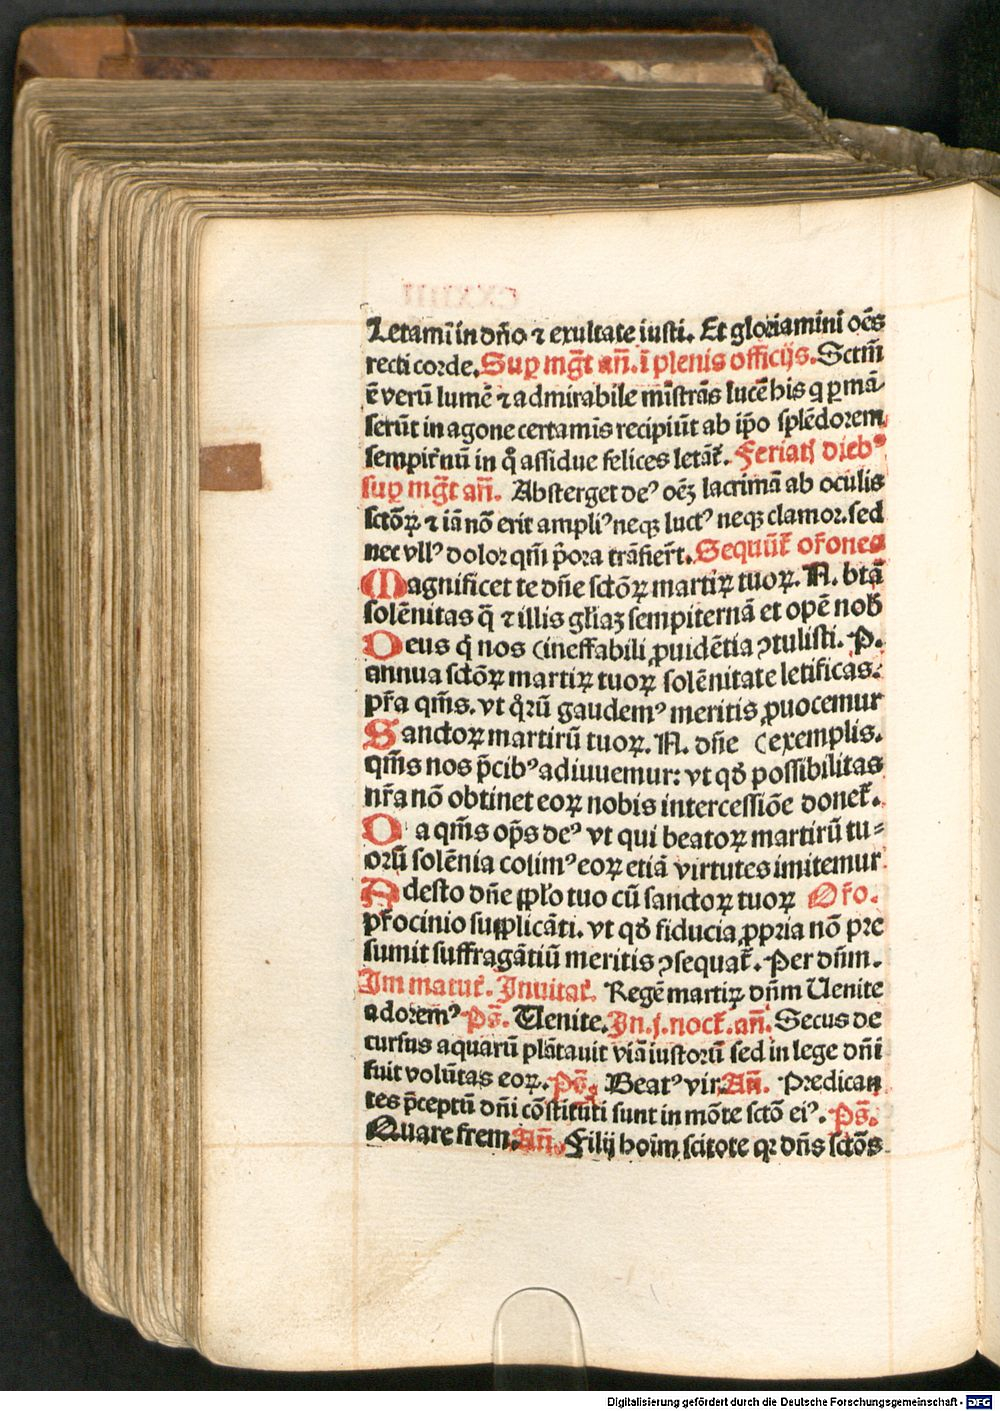 Letamĩ in dño ⁊ exultate iusti. Et gloriamini oẽs
recti corde. Suꝑ mg̃t añ. ĩ plenis officijs. Sctm̃
ẽ verũ lumẽ ⁊ admirabile mĩstrãs lucẽ his q ꝑmã
serũt in agone certamĩs recipiũt ab ip̃o splẽdorem
sempiť nũ in q̃ assidue felices letãť. Feriatꝭ diebꝰ
suꝑ mg̃t añ. Absterget deꝰ oẽꝫ lacrimã ab oculis
sctõꝝ ⁊ iã nõ erit ampliꝰ neqꝫ luctꝰ neqꝫ clamor. sed
nec vllꝰ dolor qm̃ p̃ora trãsier̃t. Sequũť or̃ones
Magnificet te dñe sctõꝝ martiꝝ tuoꝝ. N. btã
solẽnitas q̃ ⁊ illis gl̃iaꝫ sempiternã et opẽ nob̃
Deus q̃ nos (ineffabili ꝓuidẽtia ꝯtulisti. P.
annua sctõꝝ martiꝝ tuoꝝ solẽnitate letificas.
pr̃a qm̃s. vt q̃rũ gaudemꝰ meritis ꝓuocemur
Sanctoꝝ martirũ tuoꝝ. N. dñe (exemplis.
qm̃s nos p̃cibꝰ adiuuemur: vt qđ possibilitas
nr̃a nõ obtinet eoꝝ nobis intercessiõe doneť.
Da qm̃s op̃s deꝰ vt qui beatoꝝ martirũ tu⸗
orũ solẽnia colimꝰ eoꝝ etiã virtutes imitemur
Adesto dñe ppl̃o tuo cũ sanctoꝝ tuoꝝ Or̃o.
pr̃ocinio supplicãti. vt qđ fiducia ꝓpria nõ pre
sumit suffragãtiũ meritis ꝯsequať. Per dñm.
Im matuť. Inuitať. Regẽ martiꝝ dñm Uenite
adoremꝰ Ps̃. Uenite. In .j. nocť. añ. Secus de
cursus aquarũ plãtauit viã iustorũ sed in lege dñi
fuit volũtas eoꝝ. Ps̃. Beatꝰ vir. Añ. Predican
tes p̃ceptũ dñi cõstituti sunt in mõte sctõ eiꝰ. Ps̃.
Quare frem. Añ. Filij hoĩm scitote qꝛ dñs sctõs
Digitalisierung gefördert durch die Deutsche Forschungsgemeinschaft - DFG